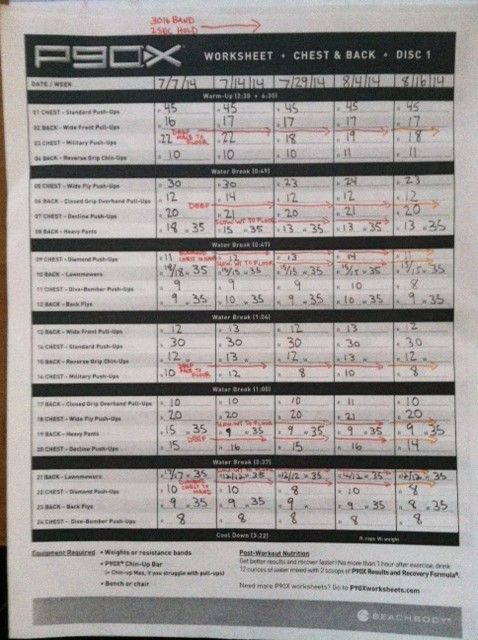 3016 BAND
2 SEC HOLD
P90X WORKSHEET • CHEST & BACK • DISC 1
DATE / WEEK 7/7/14 7/14/14 7/29/14 8/4/14 8/16/14
Warm-Up (2:30 + 6:30)
01 CHEST - Standard Push-Ups 45 45 45 45 45
02 BACK - Wide Front Pull-Ups 16 17 17 17 17
DEEP
FACE TO FLOOR
03 CHEST - Military Push-Ups 22 22 18 19 18
04 BACK - Reverse Grip Chin-Ups 10 10 10 11 11
Water Break (0:49)
05 CHEST - Wide Fly Push-Ups 30 30 23 24 23
06 BACK - Closed Grip Overhand Pull-Ups 12 14 12 12 12
DEEP
07 CHEST - Decline Push-Ups 20 21 20 21 20
SLOW. WT TO FLOOR
08 BACK - Heavy Pants 18 35 15 35 13 35 13 35 13 35
Water Break (0:47)
09 CHEST - Diamond Push-Ups 11 12 13 14 11
SLOW. WT TO FLOOR
10 BACK - Lawnmowers 18/18 35 15/15 35 15/15 35 15/15 35 35
11 CHEST - Dive-Bomber Push-Ups 9 9 9 10 8
12 BACK - Back Flys 9 35 10 35 9 35 10 35 9 35
Water Break (1:24)
13 BACK - Wide Front Pull-Ups 12 13 12 13 12
14 CHEST - Standard Push-Ups 30 30 30 30 30
15 BACK - Reverse Grip Chin-Ups 12 13 12 13 12
DEEP
FACE TO FLOOR
16 CHEST - Military Push-Ups 10 12 8 10 8
Water Break (1:00)
17 BACK - Closed Grip Overhand Pull-Ups 10 10 10 11 10
18 CHEST - Wide Fly Push-Ups 20 20 20 21 20
SLOW. WT TO FLOOR
19 BACK - Heavy Pants 15 35 9 35 9 35 9 35 9 35
DEEP
20 CHEST - Decline Push-Ups 15 16 15 16 14
Water Break (2:27)
21 BACK - Lawnmowers 17/17 35 12/12 35 12/12 35 35 12/12 35
CHEST TO HAND
22 CHEST - Diamond Push-Ups 10 10 8 10 8
23 BACK - Back Flys 9 35 9 35 9 35 9 35 8 35
24 CHEST - Dive-Bomber Push-Ups 8 8 8 8 8
Cool Down (3:22) R: reps W: weight
Equipment Required • Weights or resistance bands
• P90X® Chin-Up Bar
(+ Chin-up Max, if you struggle with pull-ups)
• Bench or chair
Post-Workout Nutrition
Get better results and recover faster! No more than 1 hour after exercise, drink
12 ounces of water mixed with 2 scoops of P90X Results and Recovery Formula®.
Need more P90X worksheets? Go to P90Xworksheets.com
BEACHBODY®